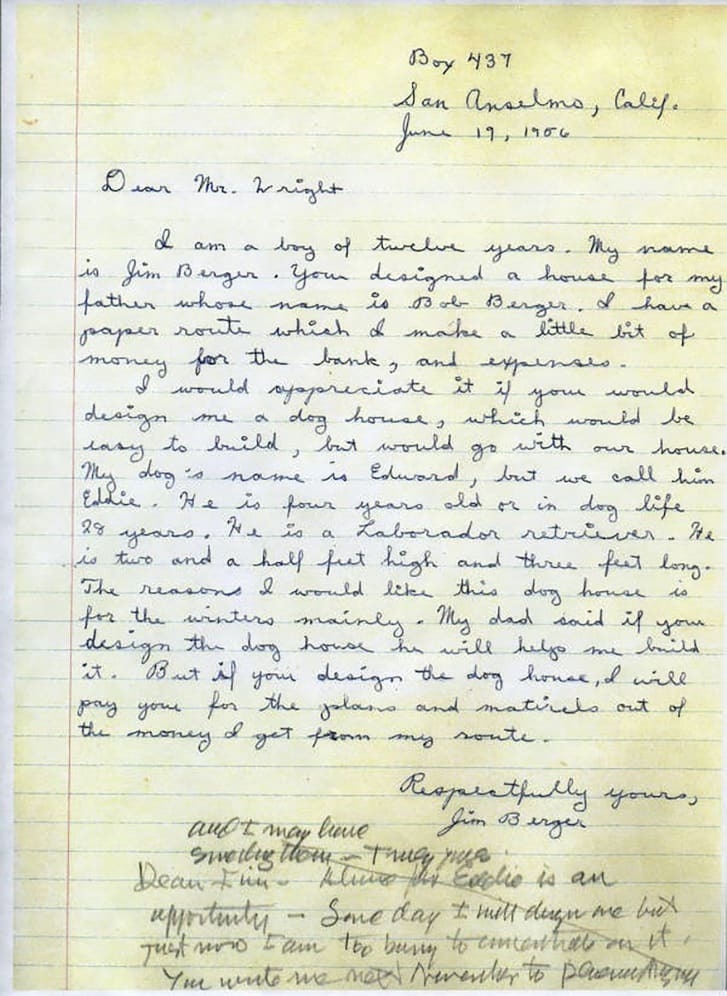 Box 437
San Anselmo, Calif.
June 19, 1956
Dear Mr. Wright
I am a boy of twelve years. My name
is Jim Berger. You designed a house for my
father whose name is Bob Berger. I have a
paper route which I make a little bit of
money for the bank, and expenses.
I would appreciate it if you would
design me a dog house, which would be
easy to build, but would go with our house.
My dog's name is Edward, but we call him
Eddie. He is four years old or in dog life
28 years. He is a Laborador retriever. He
is two and a half feet high and three feet long.
The reasons I would like this dog house is
for the winters mainly. My dad said if you
design the dog house he will help me build
it. But if you design the dog house, I will
pay you for the plans and matirels out of
the money I get from my route.
Respectfully yours,
Jim Berger
and I may have
something then - Truly yours
Dear Jim - House for Eddie is an
opportunity - Some day I will design one but
just now I am too busy to concentrate on it.
You write me next November to Phoenix